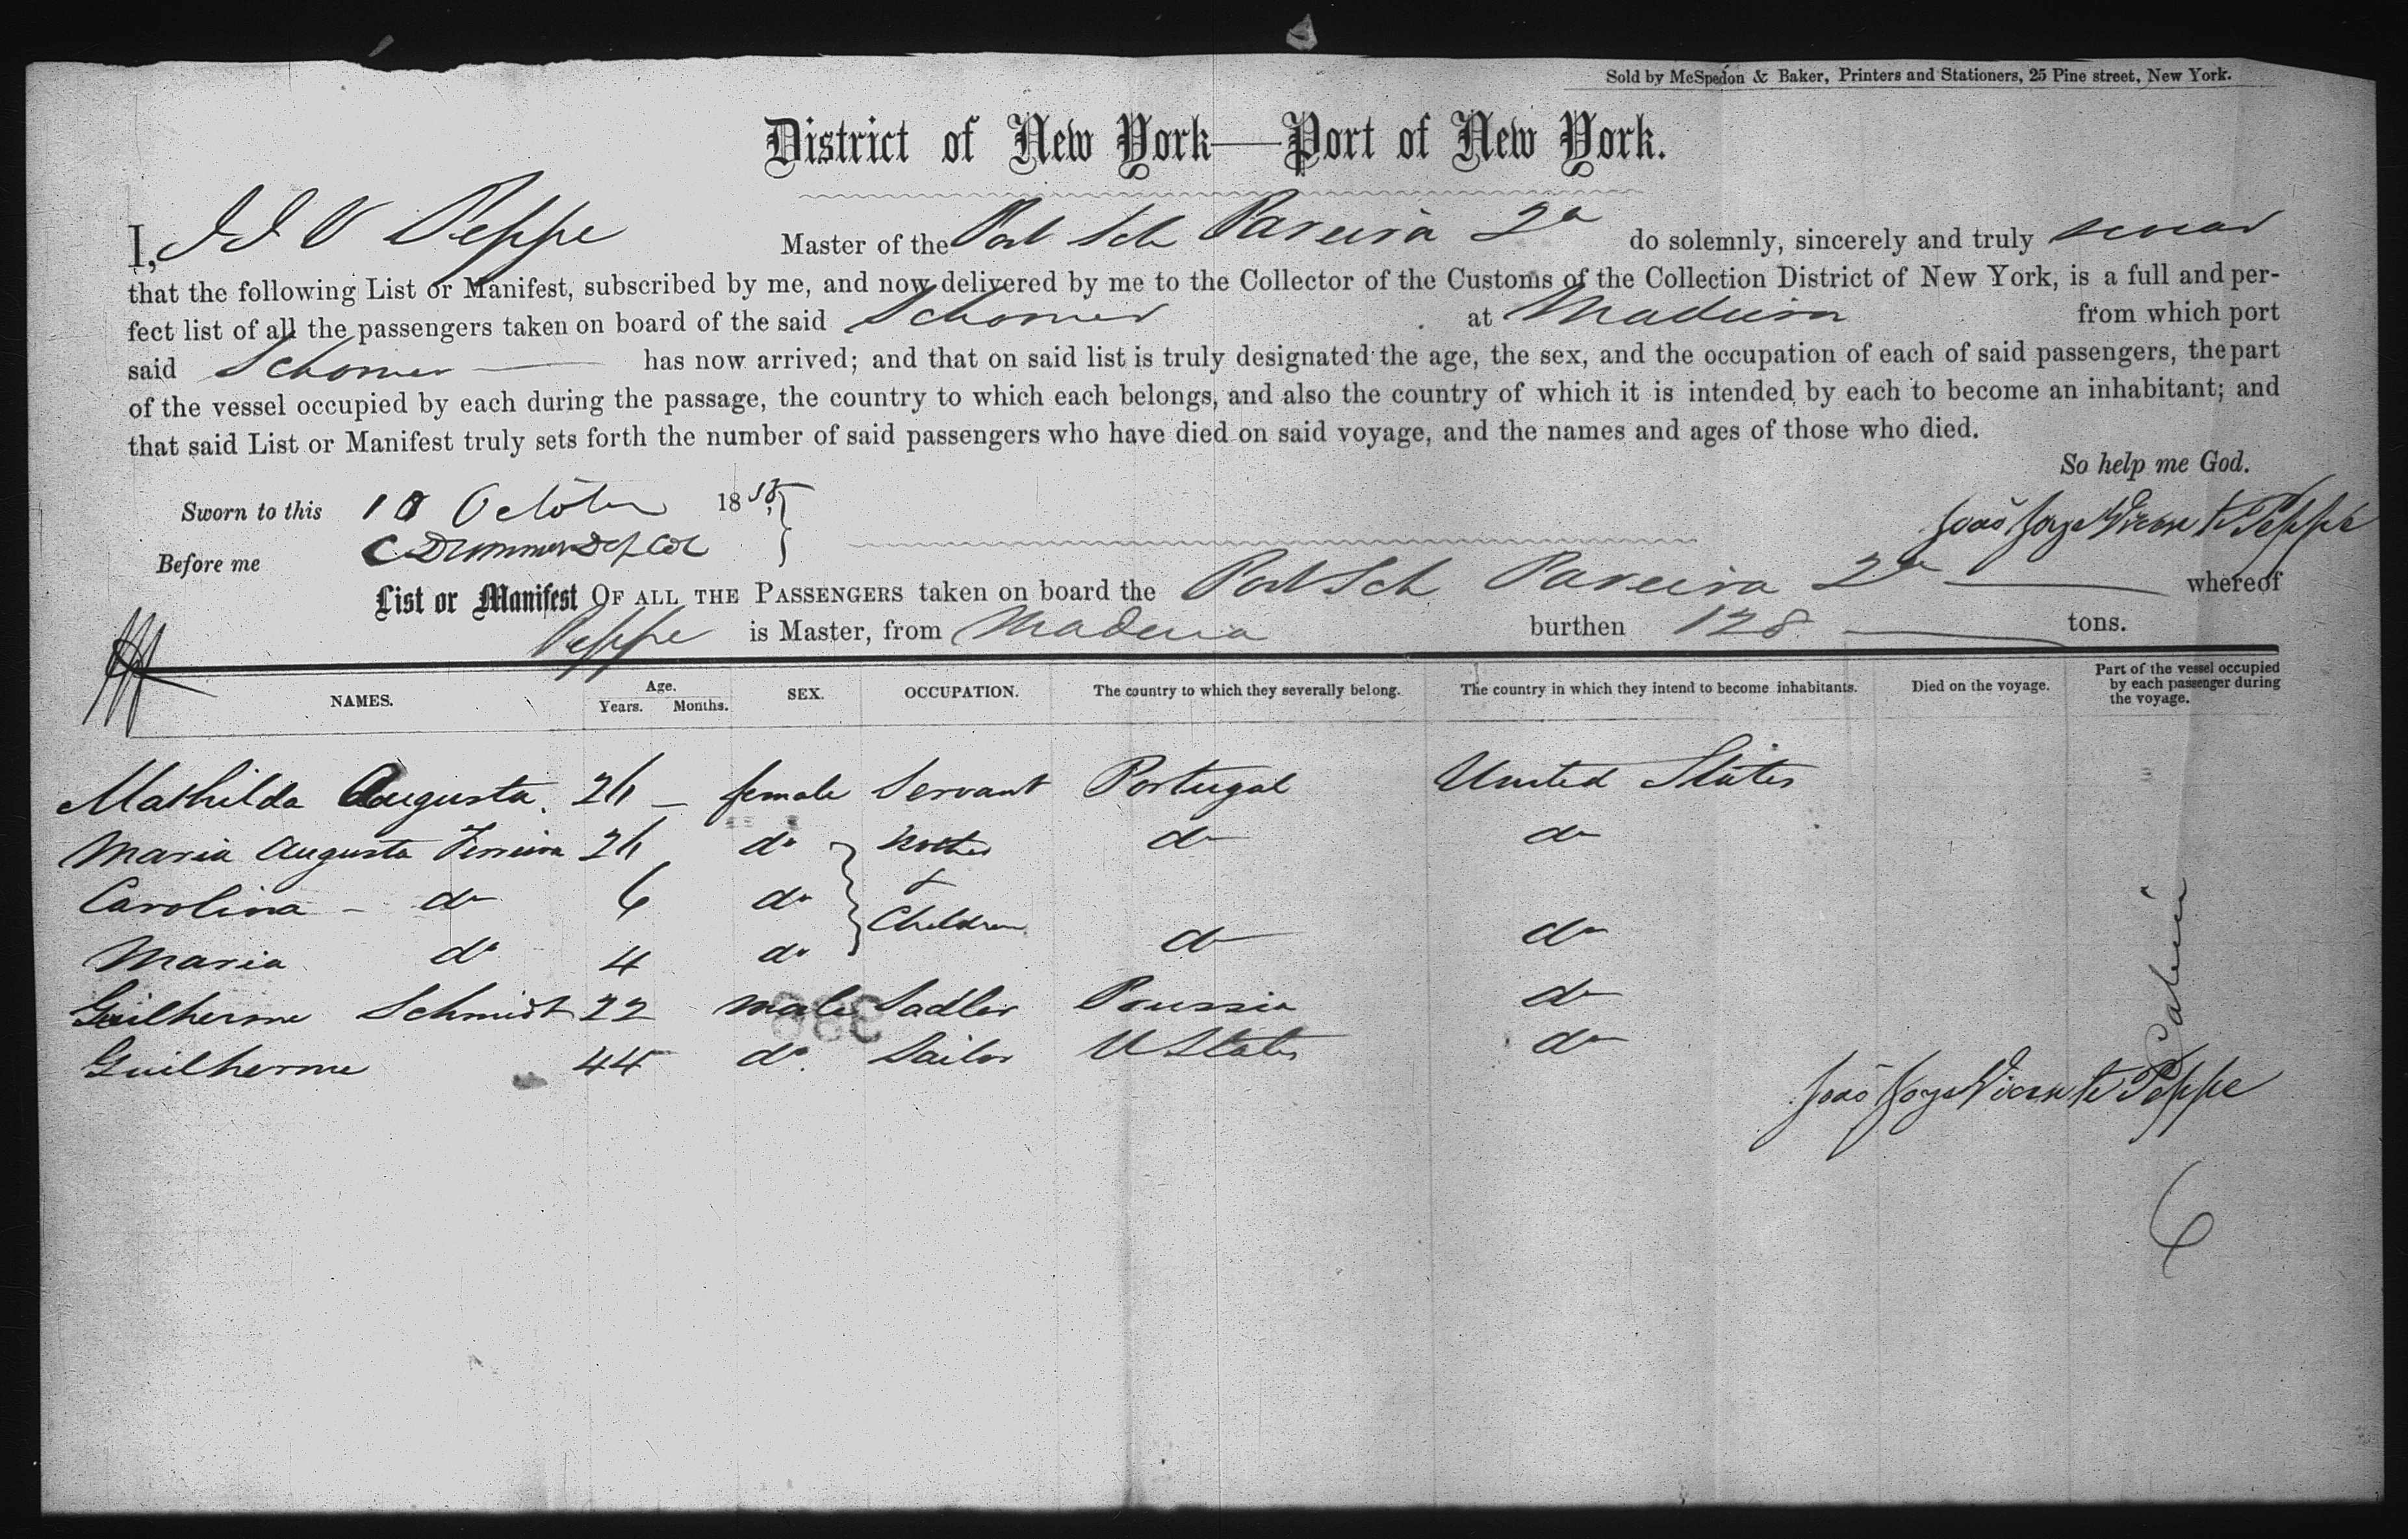 Sold by McSpedon & Baker, Printers and Stationers, 25 Pine street, New York.
District of New York—Port of New York.
I, J J V Peppe Master of the Port Sch Pareira 2a do solemnly, sincerely and truly swear
that the following List or Manifest, subscribed by me, and now delivered by me to the Collector of the Customs of the Collection District of New York, is a full and per-
fect list of all the passengers taken on board of the said Schooner at Madeira from which port
said Schooner — has now arrived; and that on said list is truly designated the age, the sex, and the occupation of each of said passengers, the part
of the vessel occupied by each during the passage, the country to which each belongs, and also the country of which it is intended by each to become an inhabitant; and
that said List or Manifest truly sets forth the number of said passengers who have died on said voyage, and the names and ages of those who died.
So help me God.
Sworn to this October 18
João Jorge Vicente Peppe
Before me
List or Manifest OF ALL THE PASSENGERS taken on board the Port Sch Pareira 2a — whereof
Peppe is Master, from Madeira burthen 128 — tons.
NAMES. Age. Years. Months. SEX. OCCUPATION. The country to which they severally belong. The country in which they intend to become inhabitants. Died on the voyage. Part of the vessel occupied by each passenger during the voyage.
Mathilda Augusta. 26 — female Servant Portugal United States
Maria Augusta Ferreira 26 do Mother do do
Carolina - do 6 do &
Children
Maria do 4 do do do
Guilherme Schmidt 22 male Sadler Prussia do
Guilherme 44 do. Sailor U States do
Cabin
João Jorge Vicente Peppe
6